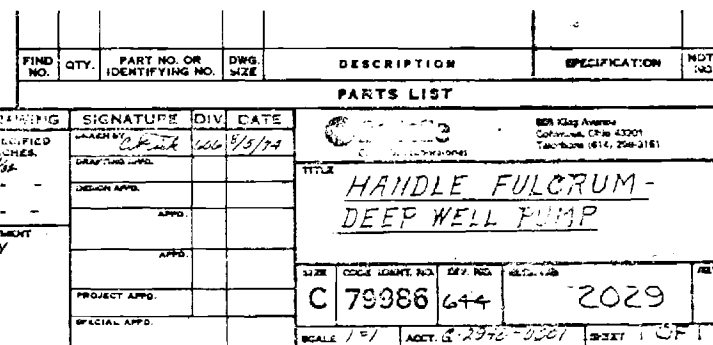 FIND NO. QTY. PART NO. OR IDENTIFYING NO. DWG. SIZE DESCRIPTION SPECIFICATION
PARTS LIST
SIGNATURE DIV. DATE
DRAWN BY 606 8/5/74
DRAFTING APPD.
DESIGN APPD.
APPD.
APPD.
PROJECT APPD.
SPECIAL APPD.
505 King Avenue
Columbus, Ohio 43201
Telephone (614) 299-3151
TITLE
HANDLE FULCRUM-
DEEP WELL PUMP
SIZE CODE IDENT. NO. DIV. NO.
C 79986 644 2029
SCALE 1=1 ACCT. SHEET 1 OF 1